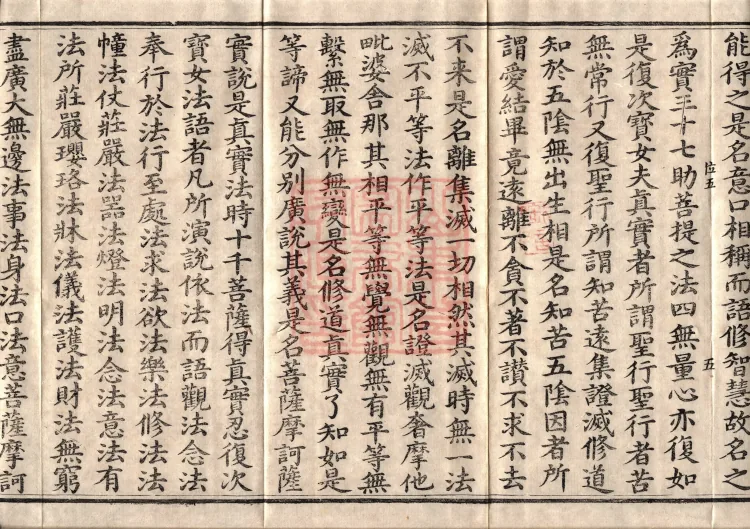 能得之是名意口相稱而語修智慧故名之
為實三十七助菩提之法四無量心亦復如
是復次寶女夫真實者所謂聖行聖行者苦
無常行又復聖行所謂知苦遠集證滅修道
知於五陰無出生相是名知苦五陰因者所
謂愛結畢竟遠離不貪不著不讚不求不去
不来是名離集滅一切相然其滅時無一法
滅不平等法作平等法是名證滅觀奢摩他
毗婆舍那其相平等無覺無觀無有平等無
繫無取無作無變是名修道真實了知如是
等諦又能分别廣說其義是名菩薩摩訶薩
實說是真實法時十千菩薩得真實忍復次
寶女法語者凡所演說依法而語觀法念法
奉行於法行至處法求法欲法樂法修法法
幢法仗莊嚴法器法燈法明法念法意法有
法所莊嚴瓔珞法牀法儀法護法財法無窮
盡廣大無邊法事法身法口法意菩薩摩訶
位五
五